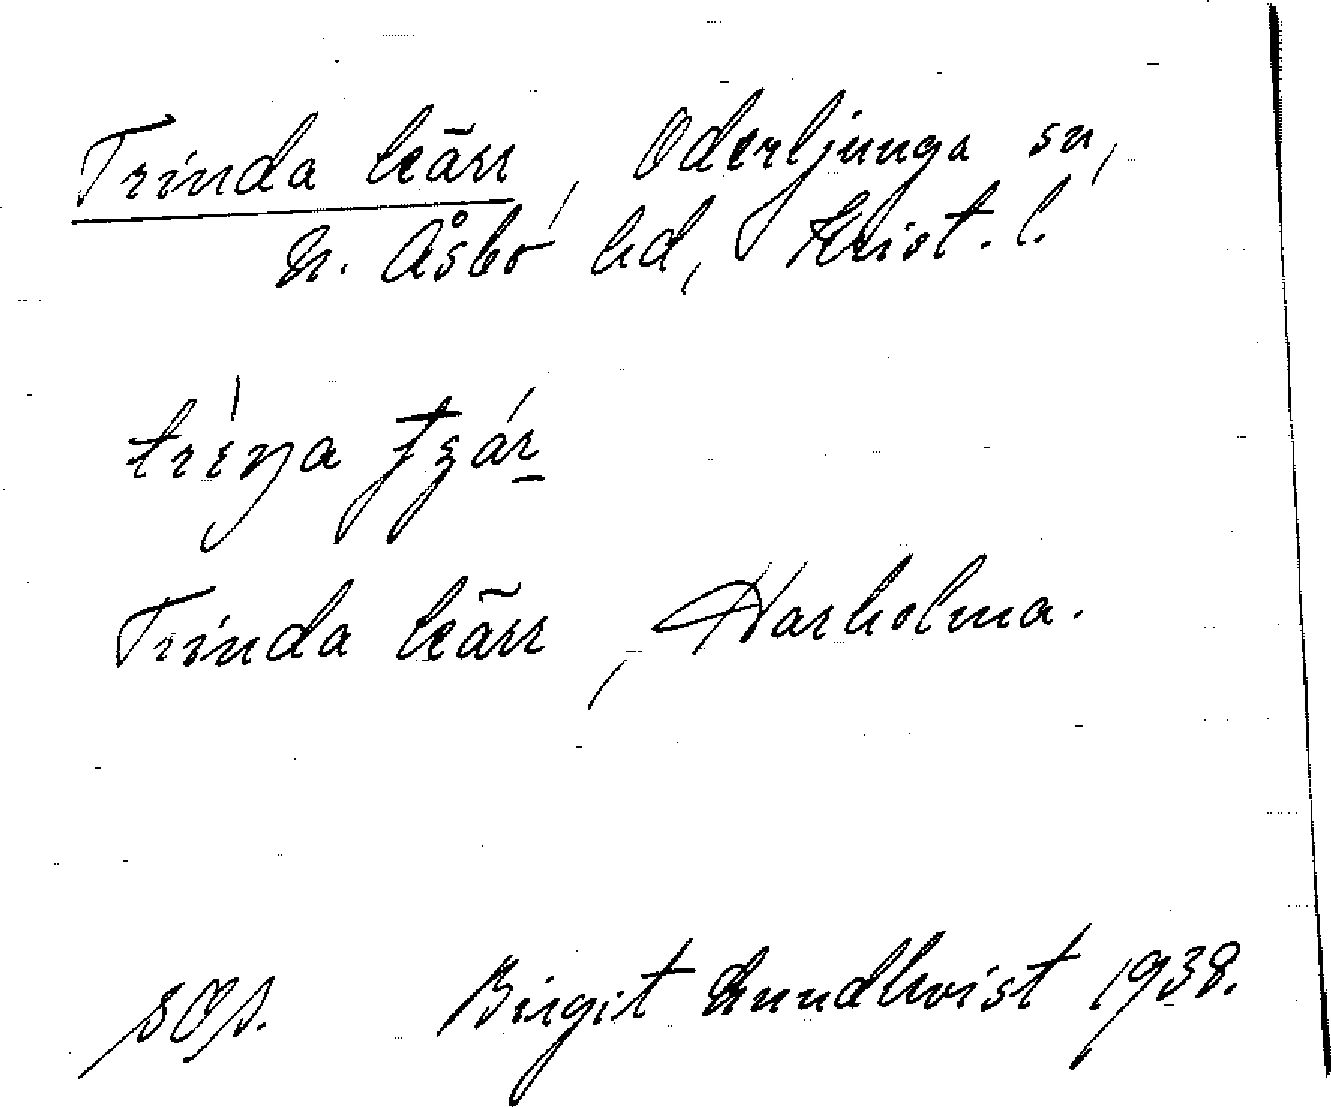 Trinda kärr, Oderljunga sn,
N. Åsbo hd, Krist. l.
Trinda kärr, Harholma.
Birgit Lundkvist 1938.